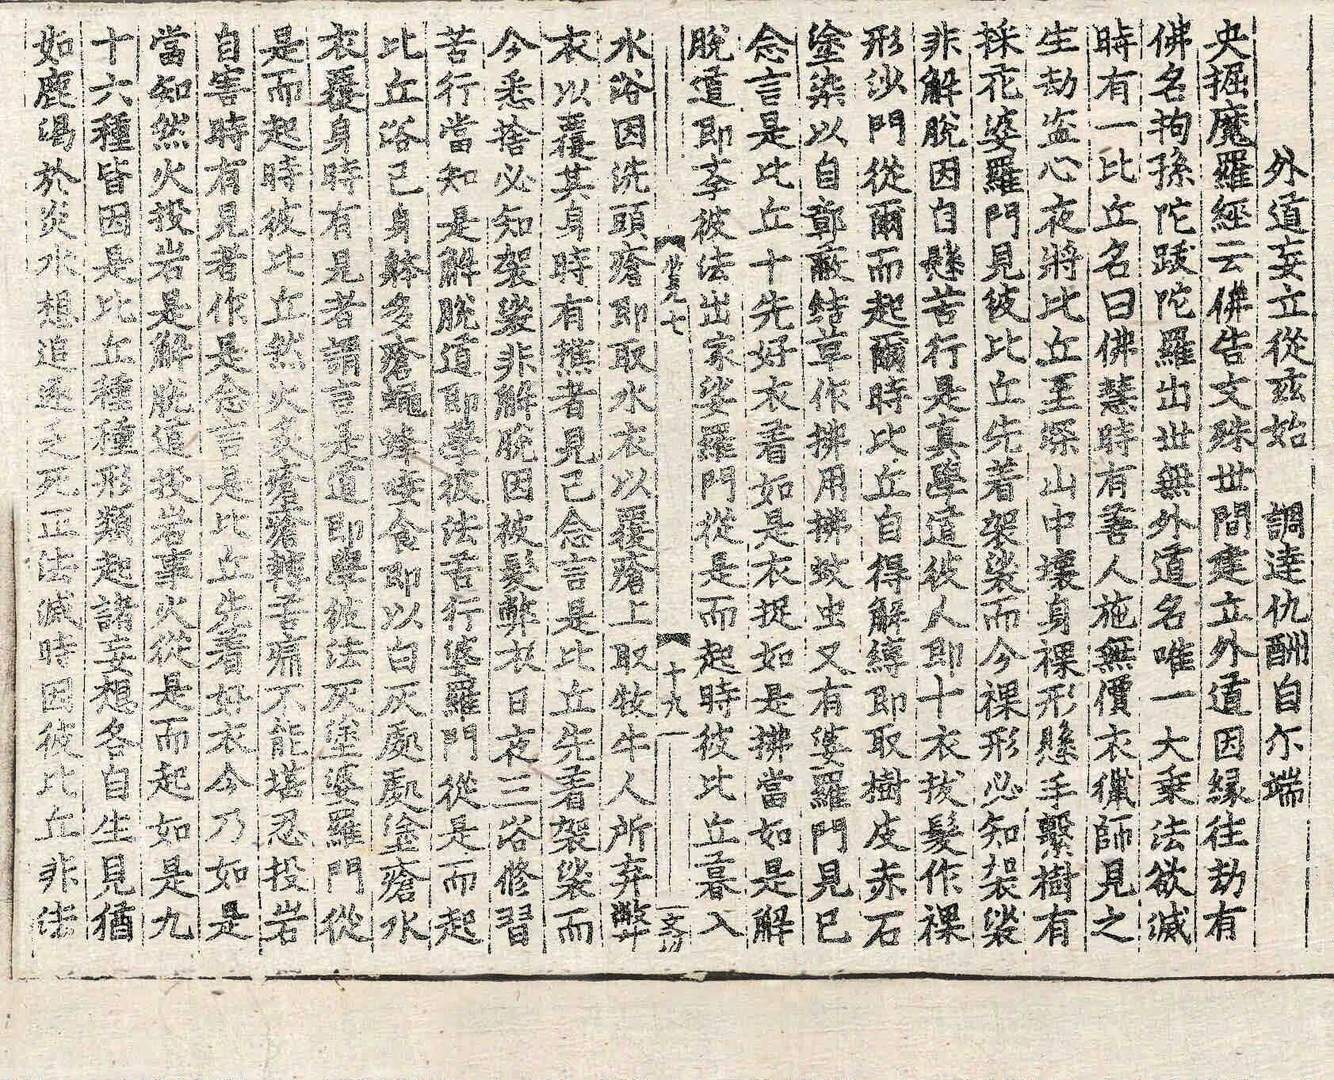 外道妄立從茲始　調達仇酬自尒端
央掘魔羅經云佛告文殊世間建立外道因緣往劫有
佛名拘孫陀跋陀羅出世無外道名唯一大乗法欲滅
時有一比丘名曰佛慧時有善人施無價衣獵師見之
生劫盗心夜將比丘至深山中壞身裸形懸手繫樹有
採花婆羅門見彼比丘先着袈裟而今裸形必知袈裟
非解脫因自懸苦行是真學道彼人即十衣拔髮作裸
形沙門從爾而起爾時比丘自得解縛即取樹皮赤石
塗染以自鄣蔽結草作拂用拂蚊虫又有婆羅門見已
念言是比丘十先好衣着如是衣捉如是拂當如是解
脫道即孝彼法出家婆羅門從是而起時彼比丘暮入
十九
水浴因洗頭瘡即取水衣以覆瘡上取牧牛人所弃弊
衣以覆其身時有樵者見已念言是比丘先着袈裟而
今悉捨必知袈裟非解脫因被髮弊衣日夜三浴修習
苦行當知是解脫道即學彼法苦行婆羅門從是而起
比丘浴已身體多瘡蠅蜂唼食即以白灰處處塗瘡水
衣覆身時有見者謂言是道即學彼法灰塗婆羅門從
是而起時彼比丘然火炙瘡瘡轉苦痛不能堪忍投岩
自害時有見者作是念言是比丘先着好衣今乃如是
當知然火投岩是解脫道投岩事火從是而起如是九
十六種皆因是比丘種種形類起諸妄想各自生見猶
如鹿渴於炎水想追逐乏死正法滅時因彼比丘非法